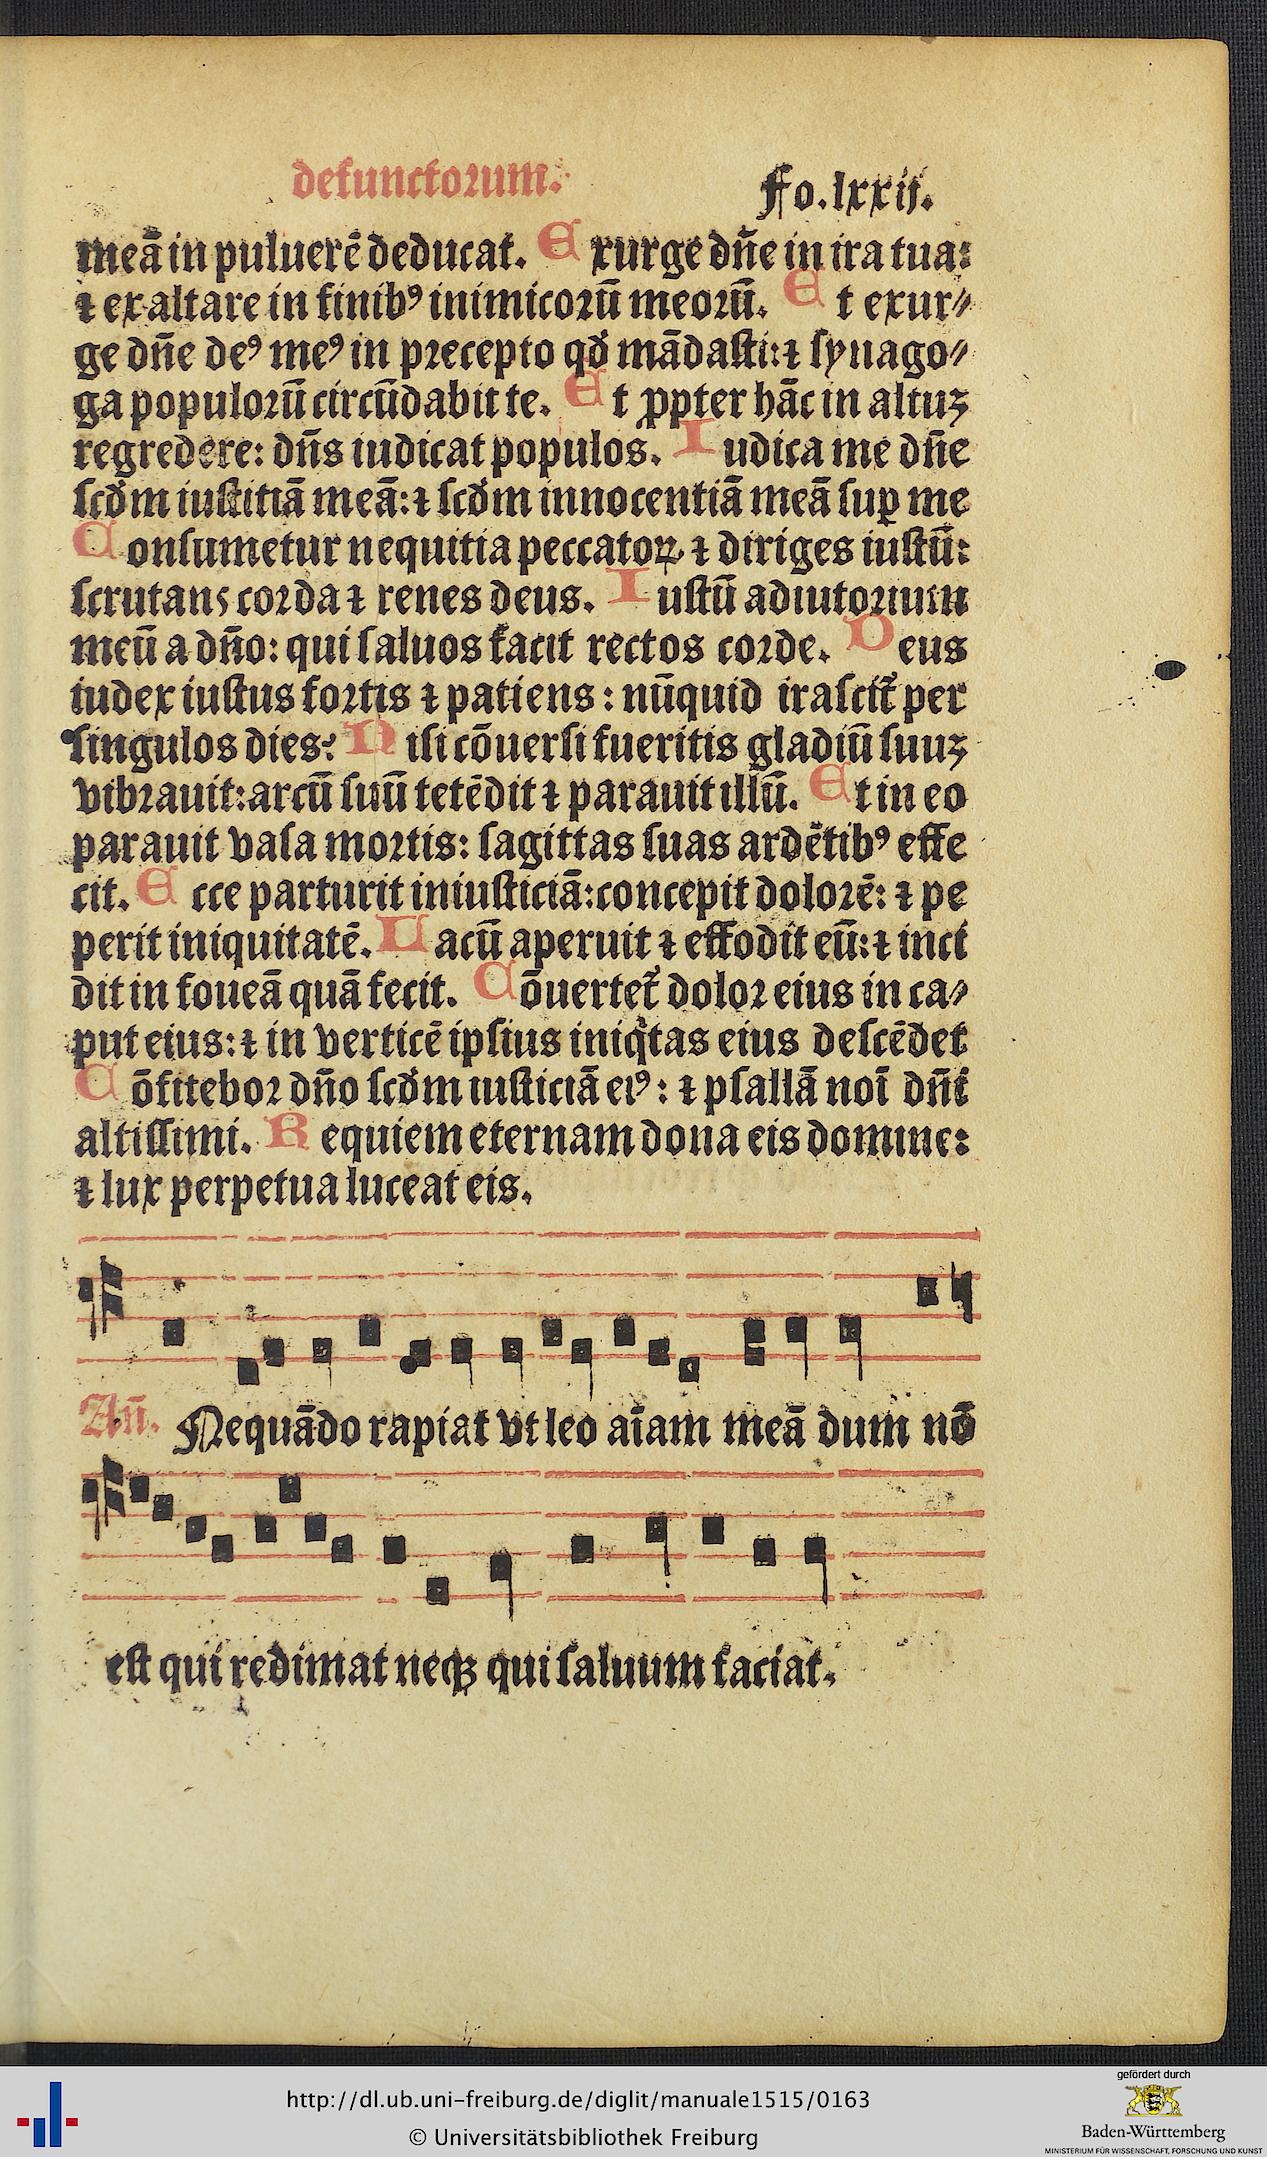 defunctorum.
Fo. lxxij.
meā in puluerē deducat. Exurge dn̄e in ira tua:
⁊ exaltare in finibꝰ inimicorū meorū. Et exur⸗
ge dn̄e deꝰ meꝰ in precepto qđ mādasti: ⁊ synago⸗
ga populorū circūdabit te. Et ꝓpter hāc in altuꝫ
regredere: dn̄s iudicat populos. Iudica me dn̄e
scđm iustitiā meā: ⁊ scđm innocentiā meā suꝑ me
Consumetur nequitia peccatoꝝ ⁊ diriges iustū:
scrutans corda ⁊ renes deus. Iustū adiutorium
meū a dn̄o: qui saluos facit rectos corde. Deus
iudex iustus fortis ⁊ patiens: nūquid irascit᷑ per
singulos dies? Nisi cōuersi fueritis gladiū suuꝫ
vibrauit: arcū suū tetēdit ⁊ parauit illū. Et in eo
parauit vasa mortis: sagittas suas ardētibꝰ effe
cit. Ecce parturit iniusticiā: concepit dolorē: ⁊ pe
perit iniquitatē. Lacū aperuit ⁊ effodit eū: ⁊ inci
dit in foueā quā fecit. Cōuertet᷑ dolor eius in ca⸗
put eius: ⁊ in verticē ipsius iniq̇tas eius descēdet
Cōfitebor dn̄o scđm iusticiā eiꝰ: ⁊ psallā noī dn̄i
altissimi. Requiem eternam dona eis domine:
⁊ lux perpetua luceat eis.
An̄. Nequādo rapiat vt leo aīam meā dum nō
est qui redimat neqꝫ qui saluum faciat.
http://dl.ub.uni-freiburg.de/diglit/manuale1515/0163
© Universitätsbibliothek Freiburg
gefördert durch
Baden-Württemberg
MINISTERIUM FÜR WISSENSCHAFT, FORSCHUNG UND KUNST